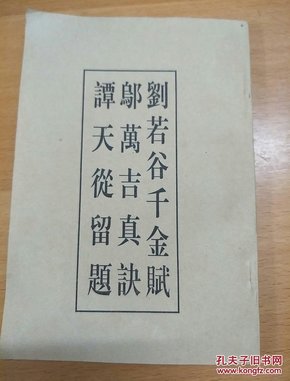 劉若谷千金賦
鄔萬吉真訣
譚天從留題
孔夫子旧书网
kongfz.com